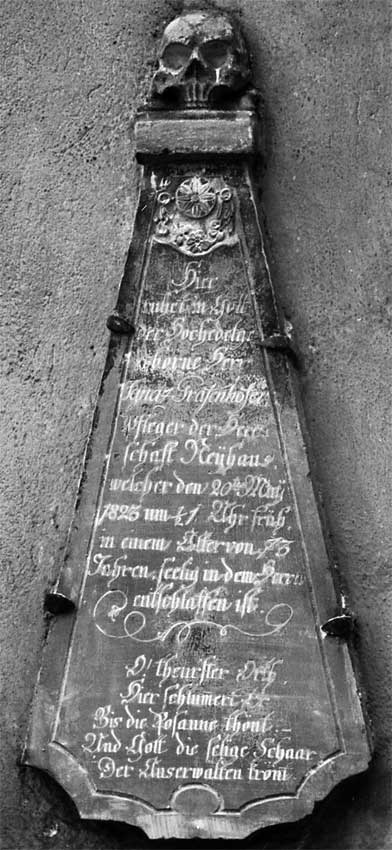 Hier
ruhet in Gott
der Hochedelge
borne Herr
Grafenhofer
Pfleger der Herr
schaft Neuhaus
welcher den 20ten May
1823 um Uhr früh
in einem Alter von 73
Jahren, seelig in dem Herrn
entschlaffen ist.
O! theurster
Hier schlumert Er
Bis die Posaune thönt
Und Gott die selige Schaar
Der Auserwälten krönt